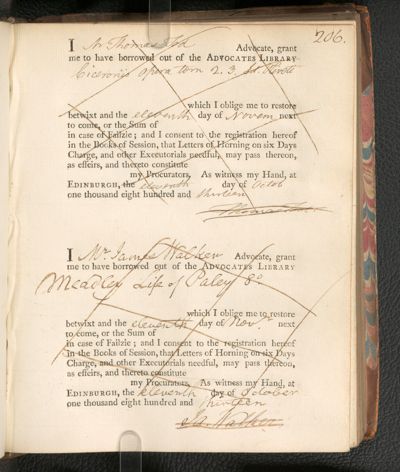 206.
I Mr Thomas Advocate, grant
me to have borrowed out of the ADVOCATES LIBRARY
Ciceronis opera tom 2. 3.
which I oblige me to restore
betwixt and the eleventh day of Novem next
to come, or the Sum of
in case of Failzie; and I consent to the registration hereof
in the Books of Session, that Letters of Horning on six Days
Charge, and other Executorials needful, may pass thereon,
as effeirs, and thereto constitute
my Procurators. As witness my Hand, at
EDINBURGH, the eleventh day of Octob
one thousand eight hundred and thirteen
Thomas
I Mr. James Walker Advocate, grant
me to have borrowed out of the ADVOCATES LIBRARY
Meadley Life of Paley 8o
which I oblige me to restore
betwixt and the eleventh day of Novr. next
to come, or the Sum of
in case of Failzie; and I consent to the registration hereof
in the Books of Session, that Letters of Horning on six Days
Charge, and other Executorials needful, may pass thereon,
as effeirs, and thereto constitute
my Procurators. As witness my Hand, at
EDINBURGH, the eleventh day of October
one thousand eight hundred and thirteen
Ja. Walker